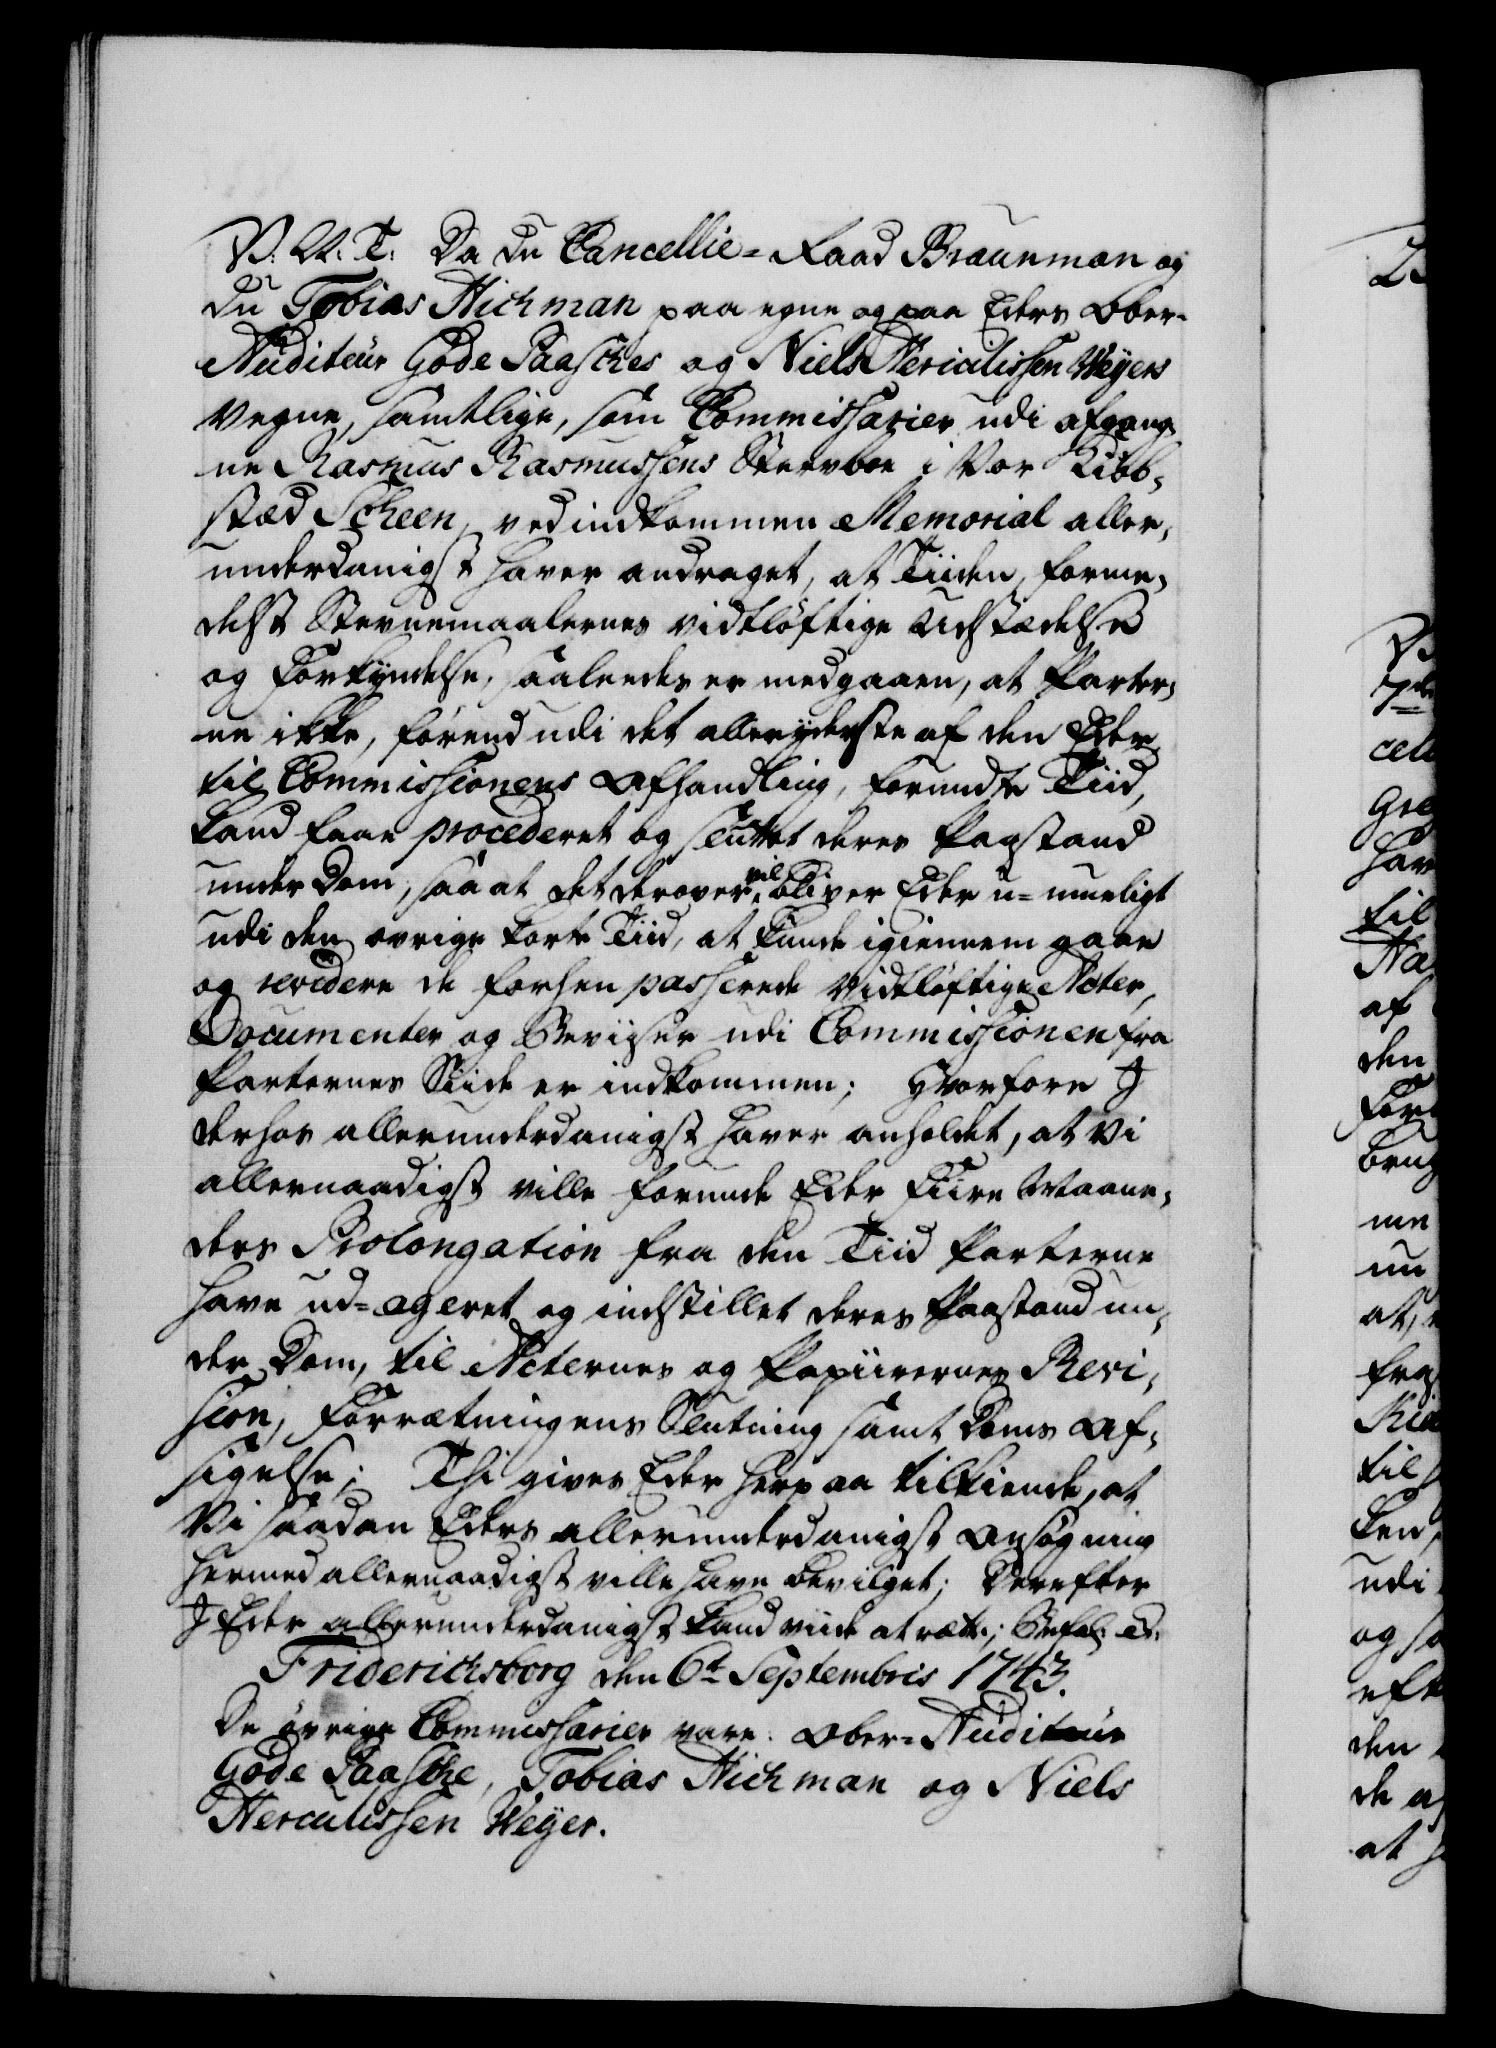 V. G. T. Da du Cancellie-Raad Braunman og
du Tobias Aichman paa egne og paa Eders Ober-
Auditeur Gode Paasches og Niels Herculissen Weyers
Vegne, samtlige, som Commissarier udi afgang-
ne Rasmus Rasmussens Sterboe i Vor Kiöb-
stæd Scheen, ved indkommen Memorial aller-
underdanigst haver andraget, at Tiiden, forme-
delst Stevnemaalernes vidtlöftige Udstædelse
og Forkyndelse, saaledes er medgaaen, at Parter-
ne ikke, förend udi det alleryderste af den Eder
til Commissionens Afhandling, forundte Tiid,
kand faae procederet og sluttet deres Paastand
under Dom, saa at det derover vil bliver Eder u-mueligt
udi den övrige korte Tiid, at kunde igiennem gaae
og revidere de forhen passerede vidtlöftige Acter,
Documenter og Beviiser udi Commissionen fra
Parternes Siide er indkommen; Hvorfore I
derhos allerunderdanigst haver anholdet, at Vi
allernaadigst ville forunde Eder Fiire Maane-
ders Prolongation fra den Tiid Parterne
have ud-ageret og indstillet deres Paastand un-
der Dom, til Acternes og Papiirernes Revi-
sion, Forrætningens Slutning samt Doms Af-
sigelse; Thi gives Eder herpaa tilkiende, at
Vi saadan Eders allerunderdanigst Ansögning
hermed allernaadigst ville have bevilget; Derefter
I Eder allerunderdanigst kand viide at rætte; Befal: &.
Friderichsborg den 6t. Septembris 1743.
De övrige Commissarier vare: Ober-Auditeur
Gode Paasche, Tobias Aichman og Niels
Herculissen Weyer.